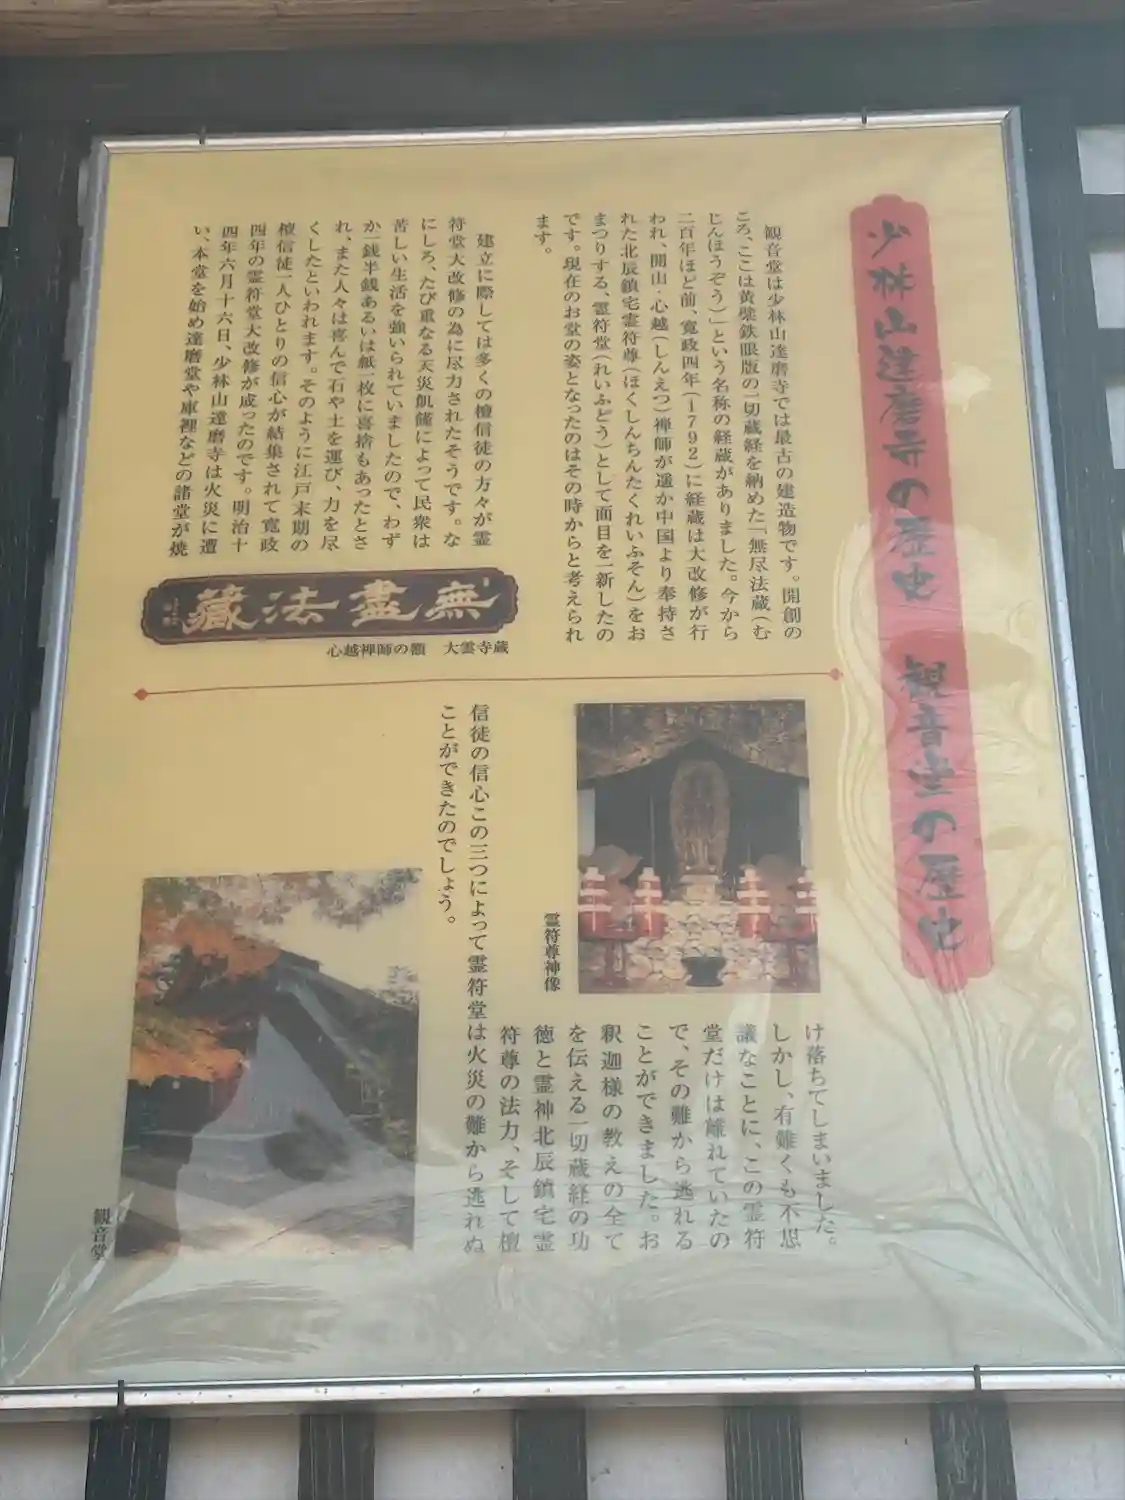 少林山達磨寺の歴史 観音堂の歴史
観音堂は少林山達磨寺では最古の建造物です。開創の
ころ、ここは黄檗鉄眼版の一切蔵経を納めた「無尽法蔵(む
じんほうぞう)」という名称の経蔵がありました。今から
二百年ほど前、寛政四年(1792)に経蔵は大改修が行
われ、開山・心越(しんえつ)禅師が遥か中国より奉持さ
れた北辰鎮宅霊符尊(ほくしんちんたくれいふそん)をお
まつりする、霊符堂(れいふどう)として面目を一新したの
です。現在のお堂の姿となったのはその時からと考えられ
ます。
建立に際しては多くの檀信徒の方々が霊
符堂大改修の為に尽力されたそうです。な
にしろ、たび重なる天災飢饉によって民衆は
苦しい生活を強いられていましたので、わず
か一銭半銭あるいは紙一枚に喜捨もあったとさ
れ、また人々は喜んで石や土を運び、力を尽
くしたといわれます。そのように江戸末期の
檀信徒一人ひとりの信心が結集されて寛政
四年の霊符堂大改修が成ったのです。明治十
四年六月十六日、少林山達磨寺は火災に遭
い、本堂を始め達磨堂や庫裡などの諸堂が焼
無盡法藏
心越禅師の額 大雲寺蔵
霊符尊神像
け落ちてしまいました。
しかし、有難くも不思
議なことに、この霊符
堂だけは離れていたの
で、その難から逃れる
ことができました。お
釈迦様の教えの全て
を伝える一切蔵経の功
徳と霊神北辰鎮宅霊
符尊の法力、そして檀
信徒の信心この三つによって霊符堂は火災の難から逃れぬ
ことができたのでしょう。
観音堂